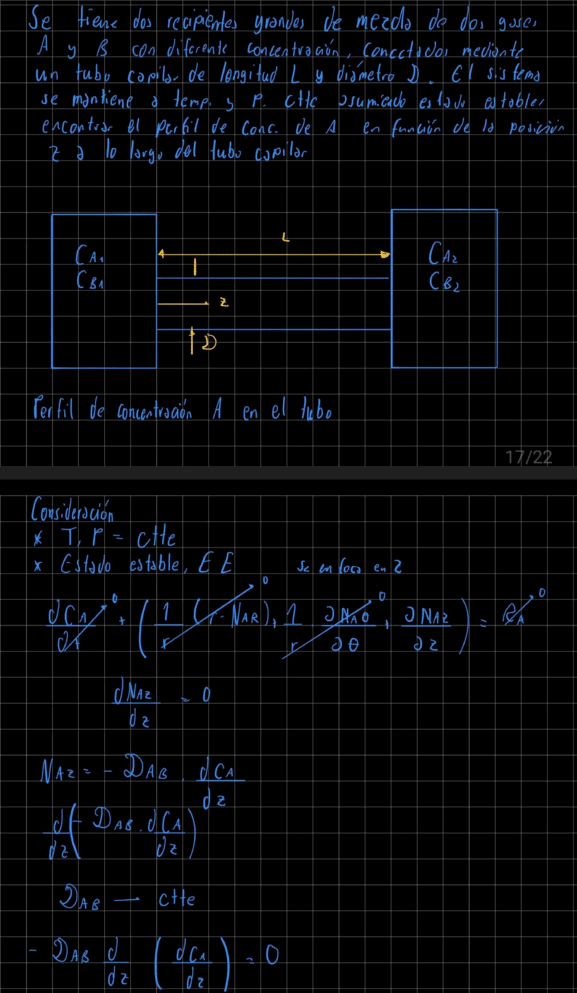 Se tiene dos recipientes grandes de mezcla de dos gases
A y B con diferente concentración, conectados mediante
un tubo capilar de longitud L y diámetro D. El sistema
se mantiene a temp. y P. ctte asumiendo estado estable,
encontrar el perfil de conc. de A en función de la posición
z a lo largo del tubo capilar
L
CA1
CB1
CA2
CB2
z
D
Perfil de concentración A en el tubo
17/22
Consideración
* T, P = ctte
* Estado estable, EE
se enfoca en z
dCA/dt → 0 + (1/r (r · NAR) → 0, 1/r ∂NAθ/∂θ → 0, ∂NAZ/∂z) = RA → 0
dNAZ/dz = 0
NAZ = - DAB · dCA/dz
d/dz (- DAB · dCA/dz)
DAB — ctte
- DAB d/dz (dCA/dz) = 0